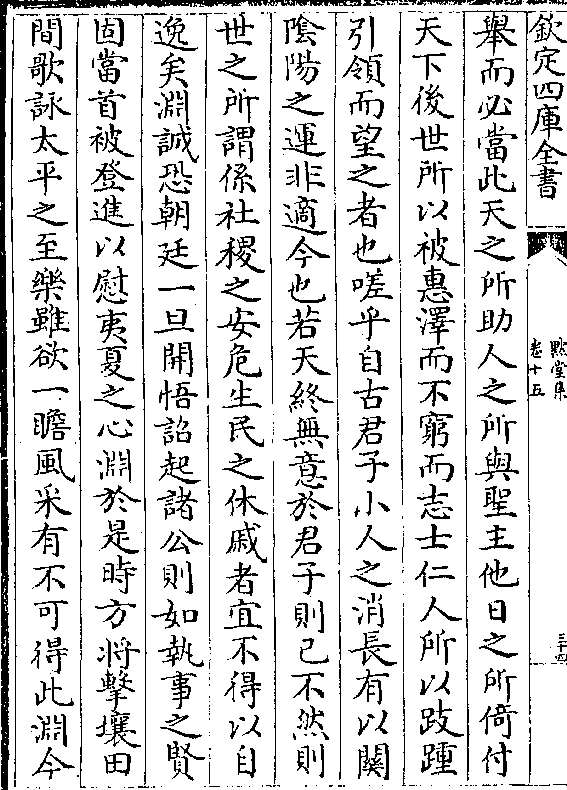 欽定四庫全書
默堂集
卷十五
三十四
舉而必當此天之所助人之所與聖主他日之所倚付
天下後世所以被惠澤而不窮而志士仁人所以跂踵
引領而望之者也嗟乎自古君子小人之消長有以關
陰陽之運非適今也若天終無意於君子則已不然則
世之所謂係社稷之安危生民之休戚者宜不得以自
逸矣淵誠恐朝廷一旦開悟詔起諸公則如執事之賢
固當首被登進以慰夷夏之心淵於是時方將擊壤田
間歌詠太平之至樂雖欲一瞻風采有不可得此淵今